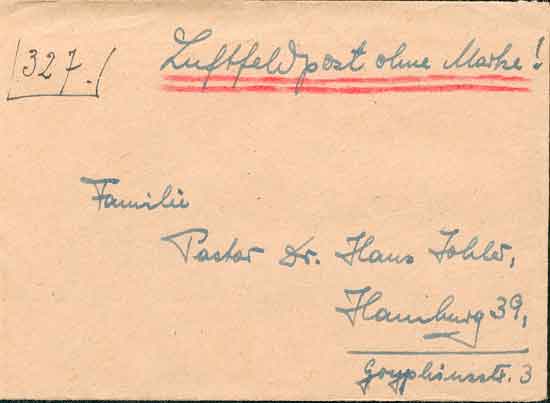 327.
Luftfeldpost ohne Marke!
Familie
Pastor Dr. Hans
Hamburg 39,
3